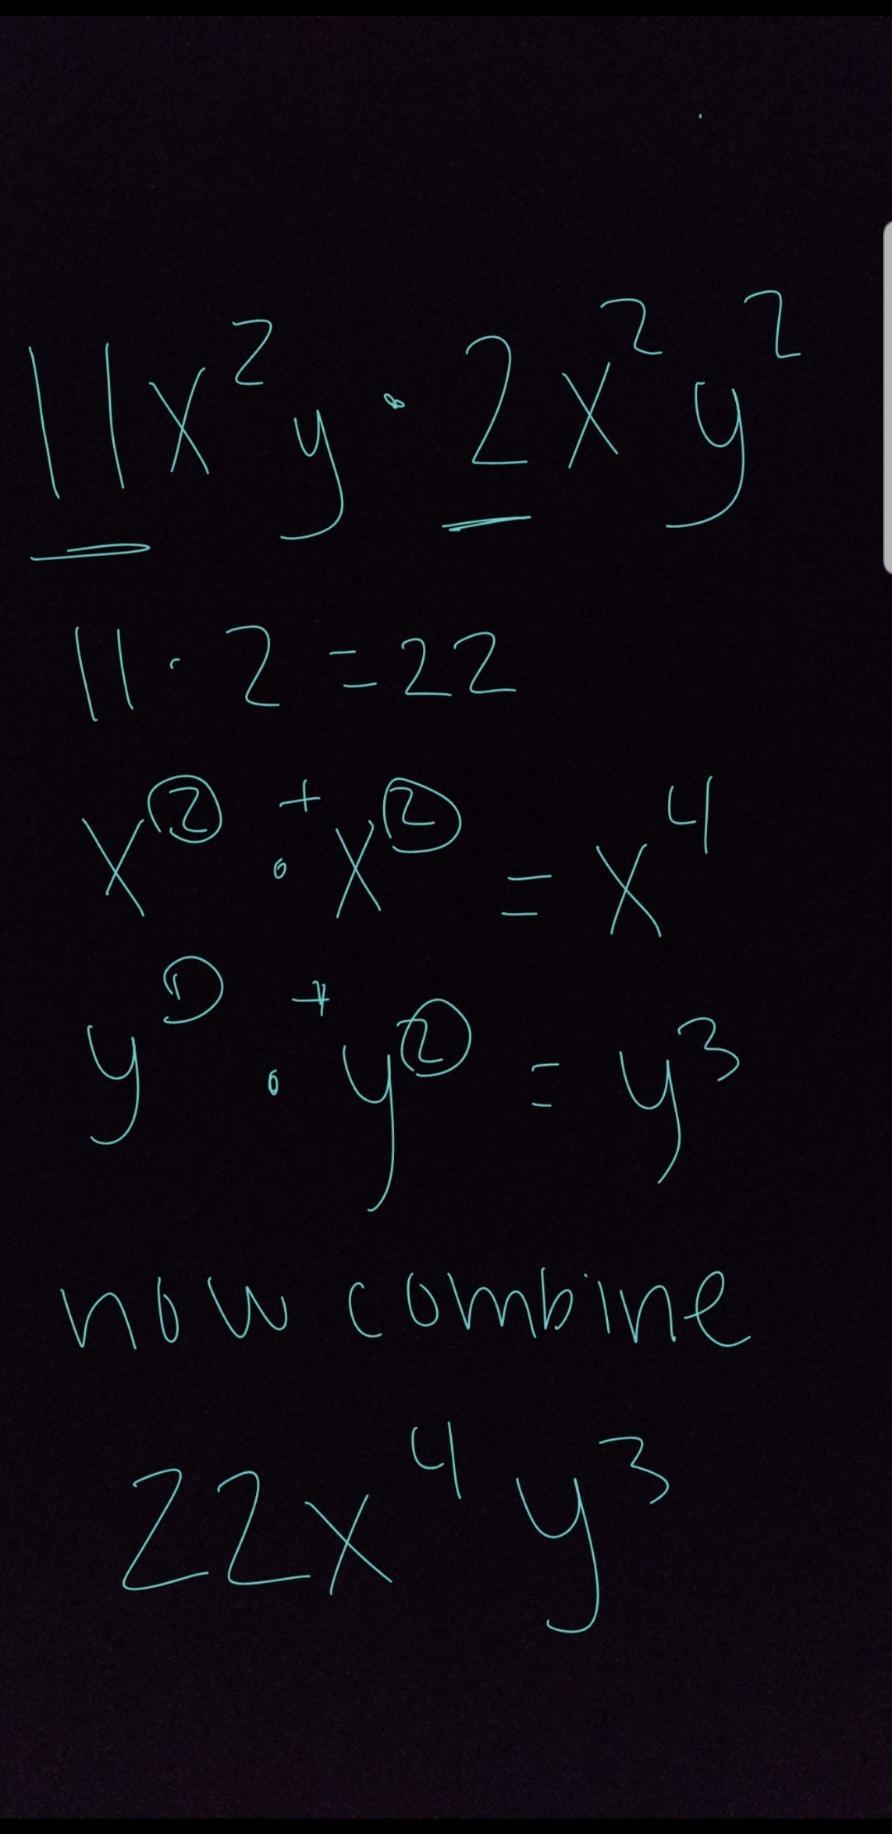 11x²y · 2x²y²
11 · 2 = 22
x² ·⁺ x² = x⁴
y¹ ·⁺ y² = y³
now combine
22x⁴y³